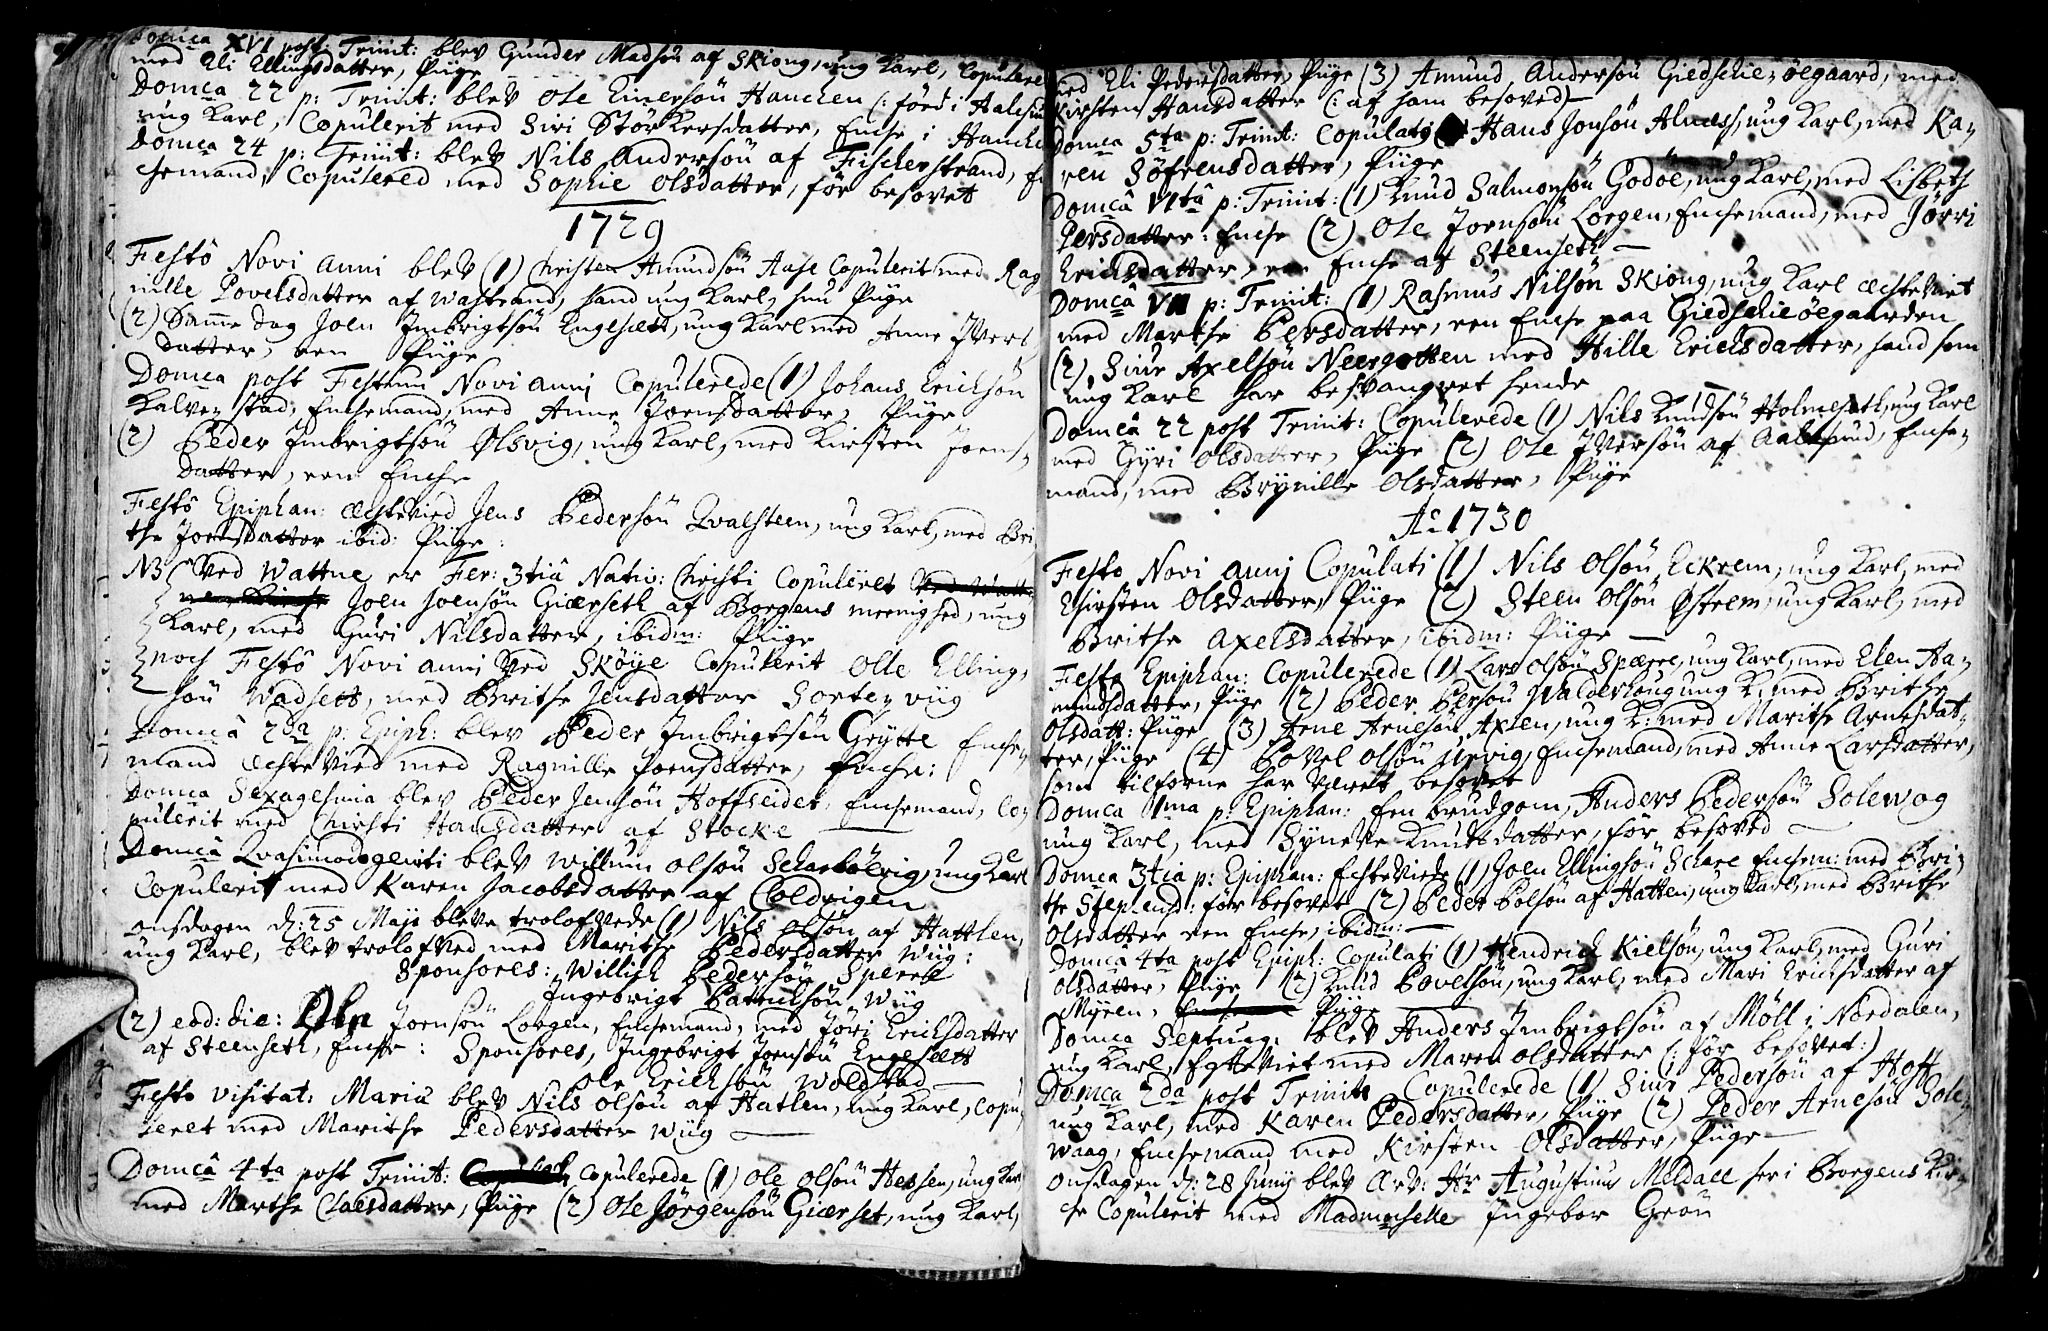 Domca XVI post. Trinit: blev Gunder Madsøn af Skiong, ung Karl, Copulere
med Eli Ellingsdatter, Piige
Domca 22 p: Trinit: blev Ole Einersøn Hauchen (: førd i Aalesund
ung Karl, Copulerit med Siri Størkersdatter, Enche i Hauche
Domca 24 p: Trinit: blev Nils Andersøn af Fischerstrand, En
chemand, Copulered med Sophie Olsdatter, før besovet
1729
Festo Novi anni blev (1) Christen Amundsøn Aase Copulerit med Rag
nille Povelsdatter af Wastrand, hand ung Karl, hun Piige
(2) Samme dag Joen Imbrigtsøn Engesett, ung Karl med Anne Ivers,
datter, een Piige
Domca post Festum Novi anni Copulerede (1) Johans Erichsøn
Kalvestad, Enchemand, med Anne Joensdatter, Piige
(2) Peder Imbrigtsøn Ølsvig, ung Karl, med Kirsten Joens,
datter, een Enche
Festo Epiphan: ægtevied Jens Pedersøn Qvalsteen, ung Karl, med Bri,
the Joensdatter ibid: Piige:
NB Ved Wattne er Fer: 3tiâ Nativ: Christi Copuleret
Joen Joensøn Giærseth af Borgens meenighed, ung
Karl, med Guri Nilsdatter, ibidm: Piige
noch Festo Novi anni Ved Skøye Copulerit Olle Elling,
søn Wadsett, med Brithe Jensdatter Sorteviig
Domcâ 2da p: Epiph: blev Peder Imbrigtsøn Grytte Enche,
mand ægtevied med Ragnille Joensdatter, Enche:
Domca Sexagesima blev Peder Jensøn Hoffseidet, Enchemand, Co,
pulerit med Christi Hansdatter af Stocke
Domcâ Qvasimodogeniti blev Willum Olsøn ung Karl
Copulerit med Karen Jacobsdatter af Coldvigen
Onsdagen d: 25 Maji bleve trolofvede (1) Nils Olsøn af Hattlen,
ung Karl, blev trolofved med Marithe Pedersdatter Wiig:
Sponsores: Willich Pedersøn Sperre
Ingebrigt Patrichsøn Wiig
(2) eod: die: Ole Joensøn Loegen, Enchemand, med Jøri Erichsdatter
af Steenseth, Enche: Sponsores, Ingebrigt Joensøn Engesett
Ole Erichsøn Woldstad
Festo visitat: Mariæ blev Nils Olsøn af Hatlen, ung Karl, Copu,
leret med Marithe Pedersdatter Wiig
Domcâ 4ta post Trinit: Copulerede (1) Ole Olsøn Hessen, ung Karl
med Marthe Claesdatter, Piige (2) Ole Jørgensøn Giærset, ung Karl,
med Eli Pedersdatter, Piige (3) Amund Andersøn Giedschie-øegaard, med
Kirsten Hansdatter (: af ham besoved)
Domca 5ta p: Trinit: Copulati Hans Jonsøn Alnæss, ung Karl, med Ka,
ren Søfrensdatter, Piige
Domcâ VIta p: Trinit: (1) Knud Salmonsøn Godöe, ung Karl, med Lisbeth
Persdatter: Enche (2) Ole Joensøn Loegen, Enchemand, med Jørri
Erichsdatter, een Enche af Steenseth
Domcâ VII p: Trinit: (1) Rasmus Nilsøn Skiong, ung Karl ægteviet
med Marthe Persdatter, een Enche paa Giedschieøegaarden
(2), Siur Axelsøn Neergotten med Hille Erichsdatter, hand som
ung Karl har besvangret hende
Domca 22 post Trinit: Copulerede (1) Nils Knudsøn Holmeseth, ung Karl
med Gyri Olsdatter, Piige (2) Ole Iversøn af Aalesund, Enche,
mand, med Brynille Olsdatter, Piige
Ao 1730
Festo Novi anni Copulati (1) Nils Olsøn Eckrem, ung Karl, med
Chirsten Olsdatter, Piige (2) Steen Olsøn Østrem, ung Karl, med
Brithe Axelsdatter, ibidm: Piige
Festo Epiphan: Copulerede (1) Lars Olsøn Sperre, ung Karl, med Elen Aa,
mundsdatter, Piige (2) Peder Persøn Walderhoug ung K: med Brithe
Olsdatt: Piige (3) Arne Arnesøn Axlen, ung K: med Marithe Arnesdat,
ter, Piige (4) Povel Olsøn Urvig, Enchemand, med Anne Larsdatter,
som tilforne har været besovet
Domca 1ma p: Epiphan: Een brudgom, Anders Pedersøn Solewog
ung Karl, med Synneve Knudsdatter, før besoved
Domca 3tia p: Epiphan: Echteviede (1) Joen Ellingsøn Schare Enchem: med Bri,
the Stephensd: før besovet (2) Peder Polsøn af Hatten, ung Karl, med Brithe
Olsdatter een Enche, ibidm:
Domca 4ta post Epiph: Copulati (1) Hendrich Kielsøn, ung Karl, med Guri
Olsdatter, Piige (2) Knud Povelsøn, ung Karl, med Mari Erichsdatter af
Myren, Piige
Domca Septuag. blev Anders Imbrigtsøn af Møll i Nordalen,
ung Karl, Egteviet med Maren Olsdatter (: før besovet:)
Domca 2da post Trinit: Copulerede (1) Siur Pedersøn af Hoff
ung Karl, med Karen Pedersdatter, Piige (2) Peder Arnesøn Sole,
waag, Enchemand med Kirsten Olsdatter, Piige
Onsdagen d: 28 Junij blev Arv: Hr Augustinus Meldall heri Borgens Kir,
che Copulerit med Madmoiselle Ingebor Grøn